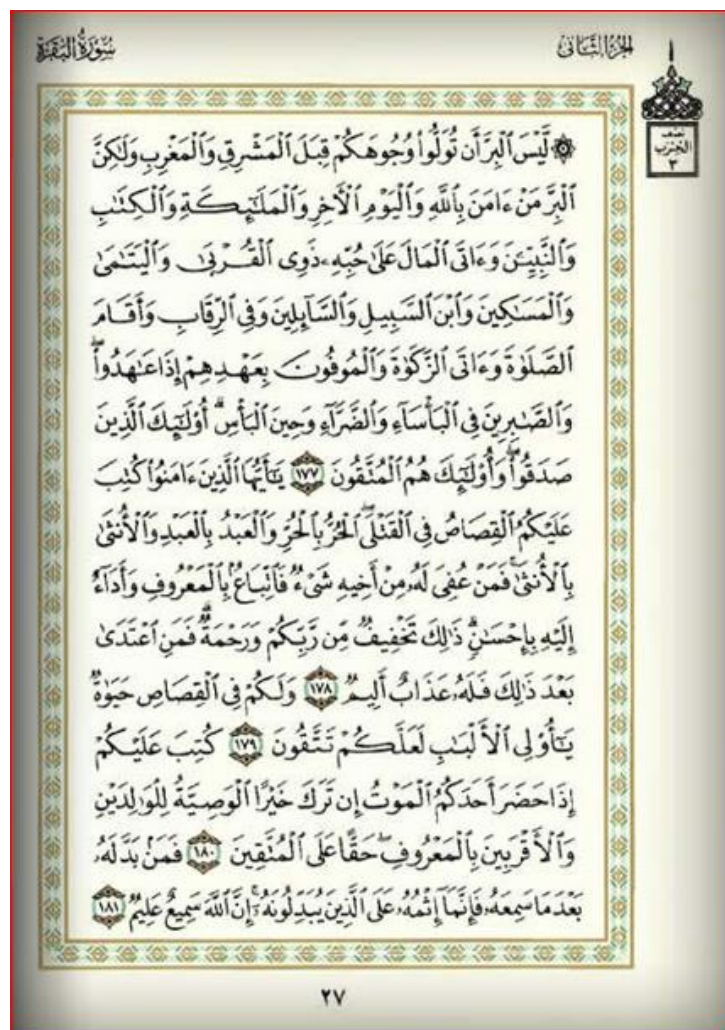 سُورَةُ البَقَرَةِ
الجُزْءُ الثَّانِي
نصف
الحزب
٣
۞ لَّيْسَ ٱلْبِرَّ أَن تُوَلُّوا۟ وُجُوهَكُمْ قِبَلَ ٱلْمَشْرِقِ وَٱلْمَغْرِبِ وَلَٰكِنَّ
ٱلْبِرَّ مَنْ ءَامَنَ بِٱللَّهِ وَٱلْيَوْمِ ٱلْءَاخِرِ وَٱلْمَلَٰٓئِكَةِ وَٱلْكِتَٰبِ
وَٱلنَّبِيِّـۧنَ وَءَاتَى ٱلْمَالَ عَلَىٰ حُبِّهِۦ ذَوِى ٱلْقُرْبَىٰ وَٱلْيَتَٰمَىٰ
وَٱلْمَسَٰكِينَ وَٱبْنَ ٱلسَّبِيلِ وَٱلسَّآئِلِينَ وَفِى ٱلرِّقَابِ وَأَقَامَ
ٱلصَّلَوٰةَ وَءَاتَى ٱلزَّكَوٰةَ وَٱلْمُوفُونَ بِعَهْدِهِمْ إِذَا عَٰهَدُوا۟ ۖ
وَٱلصَّٰبِرِينَ فِى ٱلْبَأْسَآءِ وَٱلضَّرَّآءِ وَحِينَ ٱلْبَأْسِ ۗ أُو۟لَٰٓئِكَ ٱلَّذِينَ
صَدَقُوا۟ ۖ وَأُو۟لَٰٓئِكَ هُمُ ٱلْمُتَّقُونَ ١٧٧ يَٰٓأَيُّهَا ٱلَّذِينَ ءَامَنُوا۟ كُتِبَ
عَلَيْكُمُ ٱلْقِصَاصُ فِى ٱلْقَتْلَى ۖ ٱلْحُرُّ بِٱلْحُرِّ وَٱلْعَبْدُ بِٱلْعَبْدِ وَٱلْأُنثَىٰ
بِٱلْأُنثَىٰ ۚ فَمَنْ عُفِىَ لَهُۥ مِنْ أَخِيهِ شَىْءٌ فَٱتِّبَاعٌۢ بِٱلْمَعْرُوفِ وَأَدَآءٌ
إِلَيْهِ بِإِحْسَٰنٍ ۗ ذَٰلِكَ تَخْفِيفٌ مِّن رَّبِّكُمْ وَرَحْمَةٌ ۗ فَمَنِ ٱعْتَدَىٰ
بَعْدَ ذَٰلِكَ فَلَهُۥ عَذَابٌ أَلِيمٌ ١٧٨ وَلَكُمْ فِى ٱلْقِصَاصِ حَيَوٰةٌ
يَٰٓأُو۟لِى ٱلْأَلْبَٰبِ لَعَلَّكُمْ تَتَّقُونَ ١٧٩ كُتِبَ عَلَيْكُمْ
إِذَا حَضَرَ أَحَدَكُمُ ٱلْمَوْتُ إِن تَرَكَ خَيْرًا ٱلْوَصِيَّةُ لِلْوَٰلِدَيْنِ
وَٱلْأَقْرَبِينَ بِٱلْمَعْرُوفِ ۖ حَقًّا عَلَى ٱلْمُتَّقِينَ ١٨٠ فَمَنۢ بَدَّلَهُۥ
بَعْدَ مَا سَمِعَهُۥ فَإِنَّمَآ إِثْمُهُۥ عَلَى ٱلَّذِينَ يُبَدِّلُونَهُۥٓ ۚ إِنَّ ٱللَّهَ سَمِيعٌ عَلِيمٌ ١٨١
٢٧